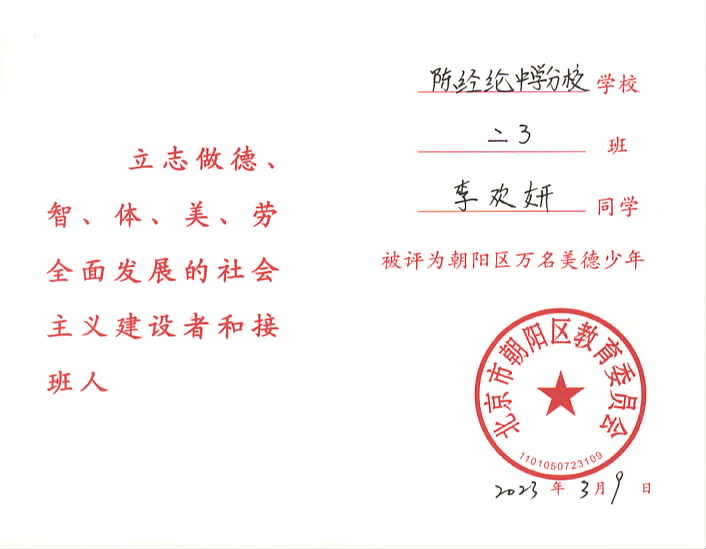 立志做德、
智、体、美、劳
全面发展的社会
主义建设者和接
班人
陈经纶中学分校 学校
二3 班
李欢妍 同学
被评为朝阳区万名美德少年
北京市朝阳区教育委员会
1101050723109
2023 年 3 月 9 日